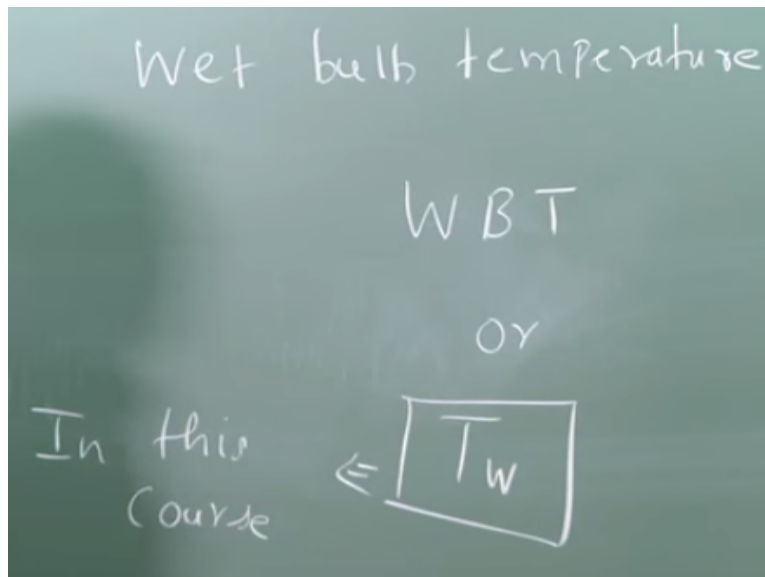 Wet bulb temperature
WBT
or
In this
Course
⇐ Tw